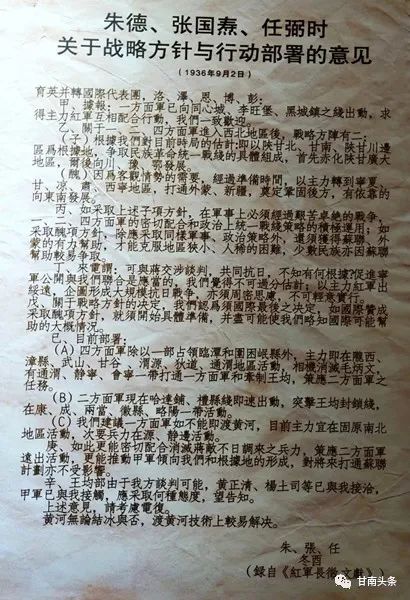 朱德、张国焘、任弼时
关于战略方针与行动部署的意见
(1936年9月2日)
育英并轉國際代表團，洛、澤、恩、博、彭：
甲、據報：一方面軍已向同心城、李旺堡、黑城鎮之綫出動，求
得主力紅軍互相配合行動，我們一致歡迎。
乙、關于一、二、四方面軍進入西北地區後，戰略方陣有二：
(子)根據我們對目前時局的估計：即以陝甘北、甘南、陝甘川邊
區爲根據地，争取民族革命統一戰綫的具體組成，首先赤化陝甘廣大
地區，爾後向川、豫、鄂發展。
(醜)因爲客觀情勢的需要，經過準備時間，以主力轉到寧夏、
甘、凉、肅、西寧地區，打通外蒙、新疆，奠定鞏固後方，有依靠的
向東南發展。
丙、如采取上述子項方針，在軍事上必須經過艱苦卓絶的戰争，
一、二、四方面軍的密切配合和政治上統一戰綫策略的積極運用；如
采取醜項方針，除應采取同樣軍事、政治策略外，還須獲得蘇聯、外
蒙的有力幫助，才能克服地區狹小、人稀的困難，少數民族亦因蘇聯
幫助較易争取。
丁、來電謂：可與蔣交涉談判，共同抗日，不知有何根據？促進寧
軍公開與我們聯合是應當的，我們覺得不可過分估計；以主力紅軍出
綏遠，企圖形成大規模抗日戰争，亦須周密思慮，不可輕意實行。
戊、關于戰略方針的决定，我們認爲須國際最後之决定，如國際贊成
采取醜項方針，就須開始具體準備，并盡可能使我們略知國際可能幫
助的大概情况。
己、目前部署：
(A)四方面軍除以一部占領臨潭和圍困岷縣外，主力即在隴西、
漳縣、武山、甘谷、渭源、狄道、通渭地區活動，相機消滅毛炳文，
有通渭、静寧、會寧一帶打通一方面軍和牽制王均，策應二方面軍之
任務。
(B)二方面軍現在哈達鋪、禮縣綫即速出動，突擊王均封鎖綫，
在康、成、兩當、徽縣、略陽一帶活動。
(C)我們建議一方面軍如不能即渡黄河，目前主力宜在固原南北
地區活動，次要兵力在 源、静邊活動。
庚、如此更能密切配合消滅蔣敵不日調來之兵力，策應二方面軍
遠出活動，更能推動甲軍傾向我們和根據地的形成，對將來打通蘇聯
計劃亦不受影響。
辛、王均部由于我方談判可能，黄正清、楊土司等已與我接洽，
甲軍已與我接觸，應采取何種態度，望告知。
上述意見，請考慮電復。
黄河無論結冰與否，渡黄河技術上較易解决。
朱、張、任
冬酉
(録自《紅軍長徵文獻》)
甘南头条